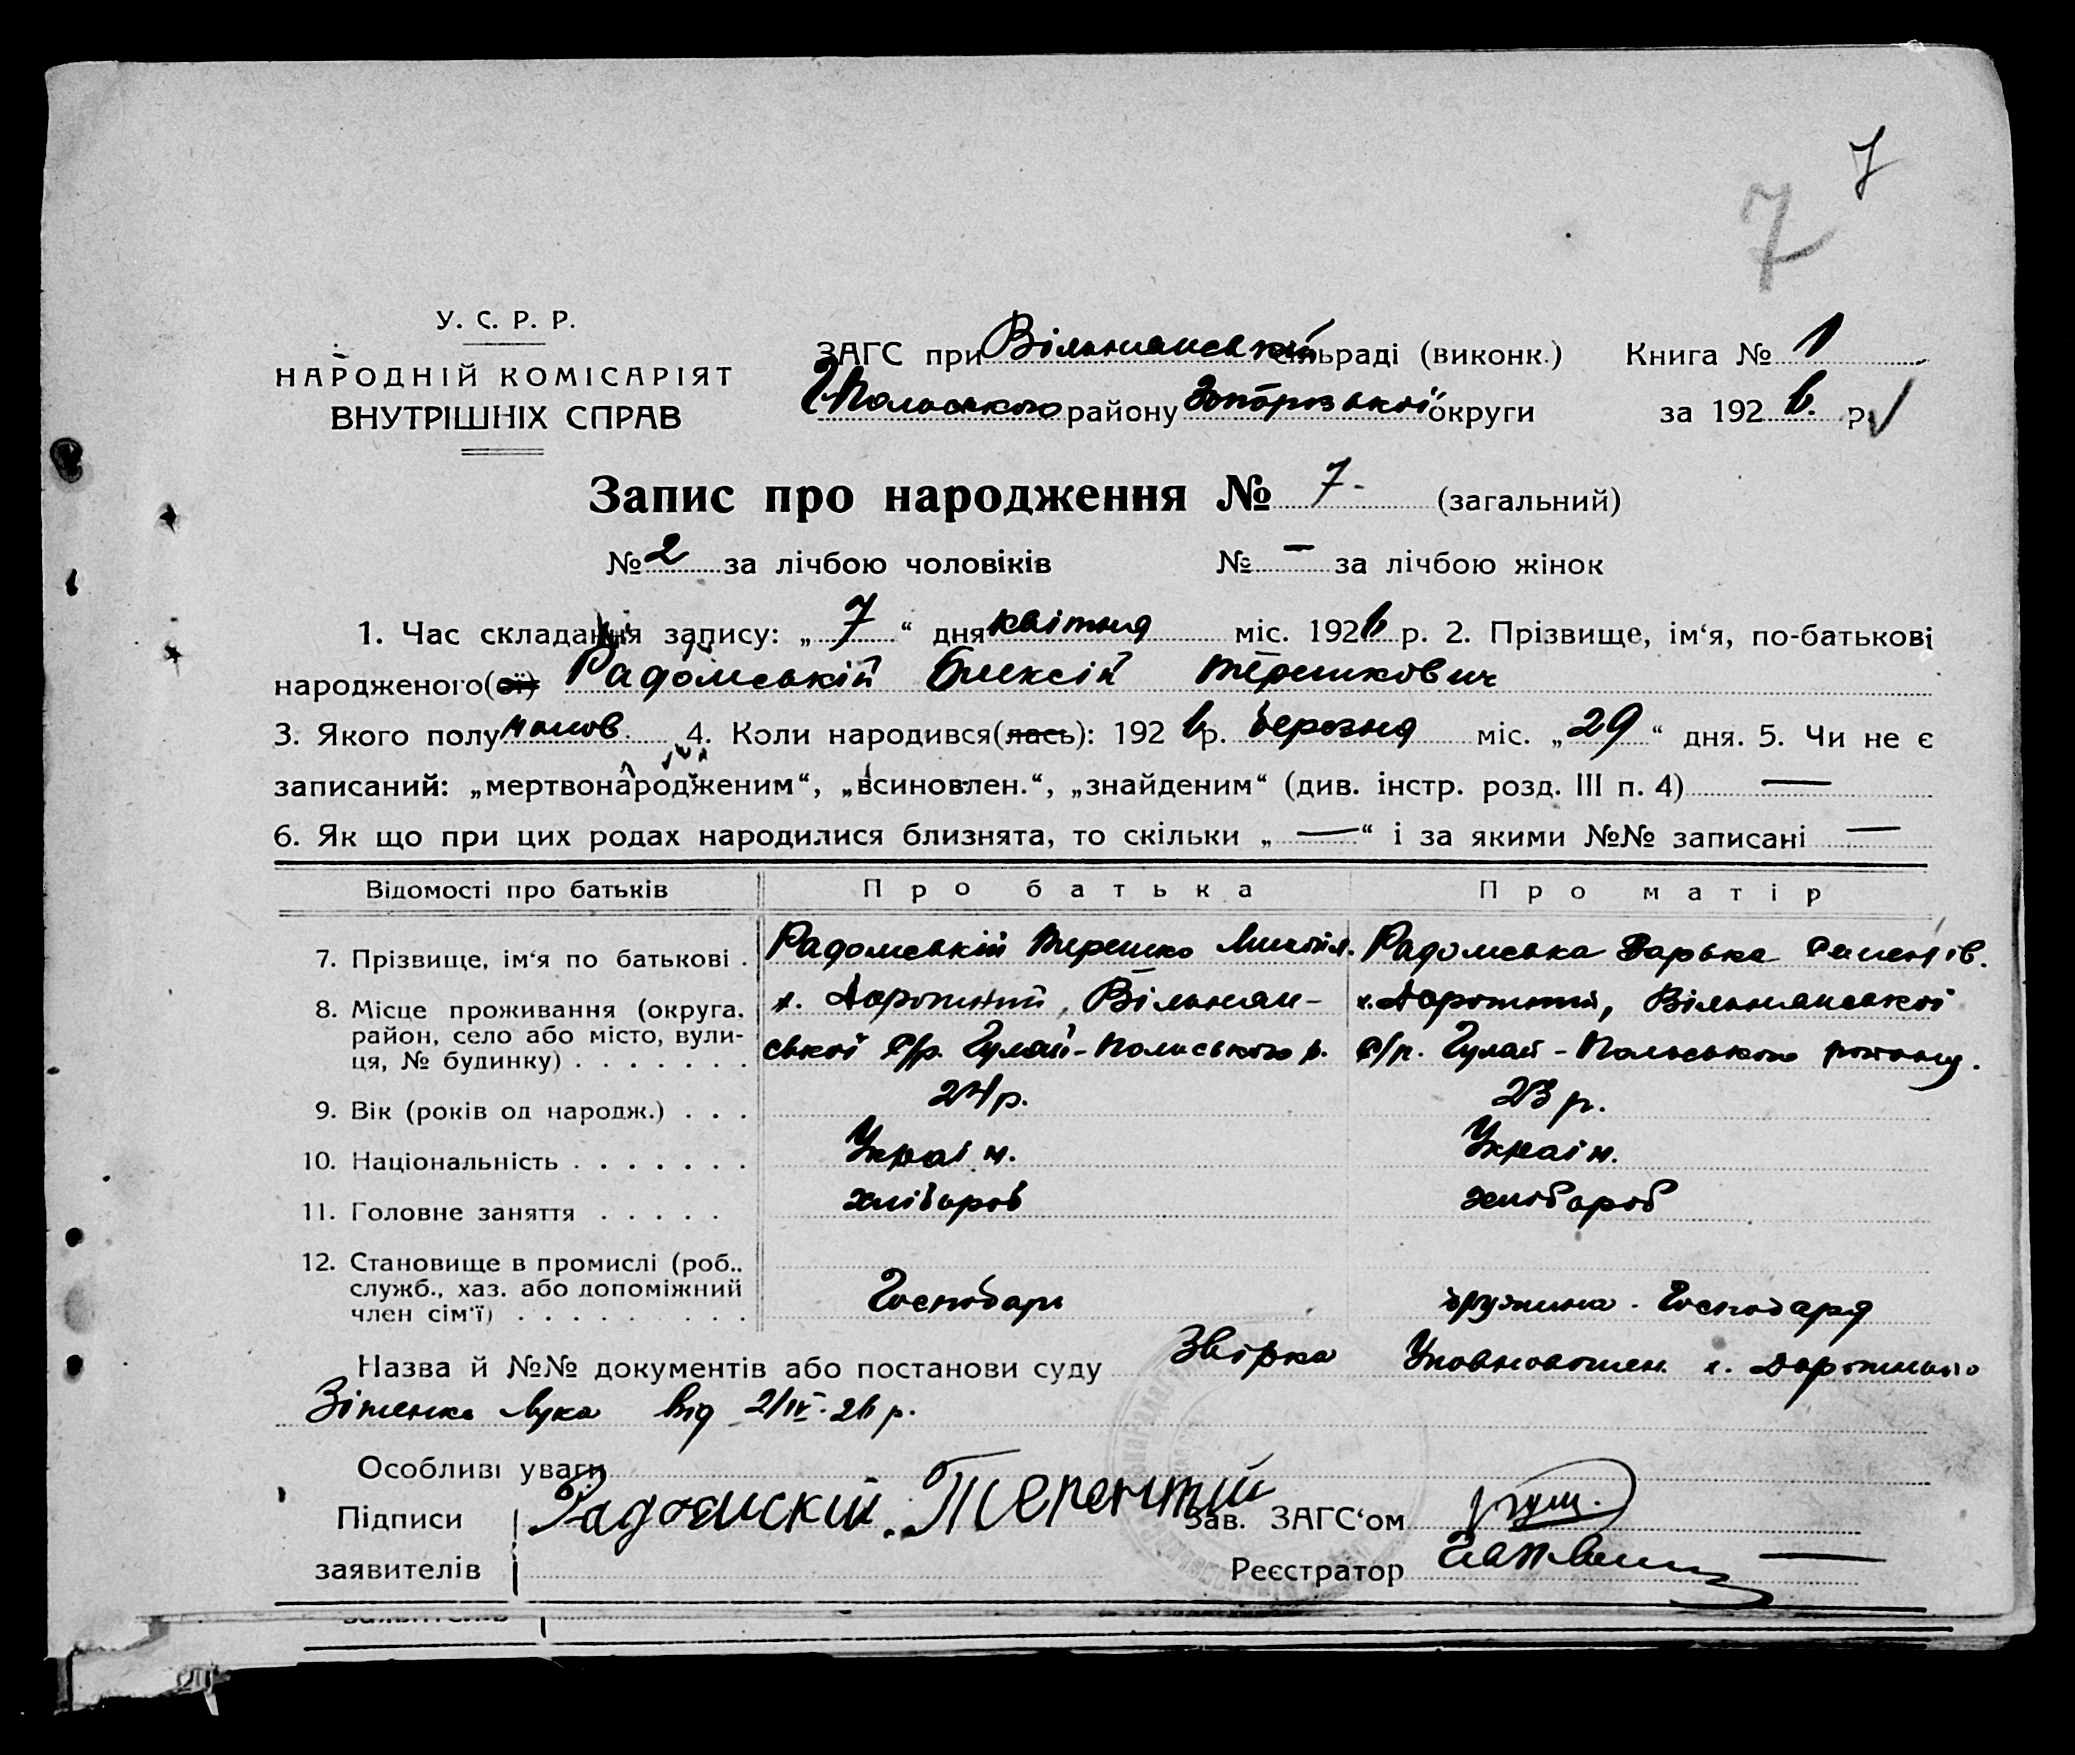 7
7
У. С. Р. Р.
НАРОДНІЙ КОМІСАРІЯТ
ВНУТРІШНІХ СПРАВ
ЗАГС при Вільнянській сільраді (виконк.) Книга № 1
Г Польського району Запорізької округи за 1926 р.
Запис про народження № 7. (загальний)
№ 2 за лічбою чоловіків № — за лічбою жінок
1. Час складання запису: „ 7 “ дня квітня міс. 1926 р. 2. Прізвище, ім‘я, по-батькові
народженого(ої) Радомській Олексій Терешкович
3. Якого полу чолов. 4. Коли народився(лась): 1926 р. березня міс. „ 29 “ дня. 5. Чи не є
записаний: „мертвонародженим“, „всиновлен.“, „знайденим“ (див. інстр. розд. III п. 4) —
6. Як що при цих родах народилися близнята, то скільки „ — “ і за якими №№ записані —
Відомості про батьків Про батька Про матір
7. Прізвище, ім‘я по батькові . Радомській Терешко Радомська Дарька
8. Місце проживання (округа, район, село або місто, вулиця, № будинку) . . . . . . .
х. Дорожний, Вільнян-
ської с/р. Гуляй-Польського р.
х. Дорожний, Вільнянської
с/р. Гуляй-Польського району.
9. Вік (років од народж.) . . . 24 р. 23 р.
10. Національність . . . . . . . Україн. Україн.
11. Головне заняття . . . . . хлібороб хлібороб
12. Становище в промислі (роб., служб., хаз. або допоміжний член сім‘ї) . . . . . . . . . Господарь дружина. Господаря
Назва й №№ документів або постанови суду Звірка Уповноважен. х. Дорожнього
Лука від 2/IV-26 р.
Особливі уваги
Підписи Радомскій. Терентий Зав. ЗАГС‘ом
заявителів Реєстратор
заявителів